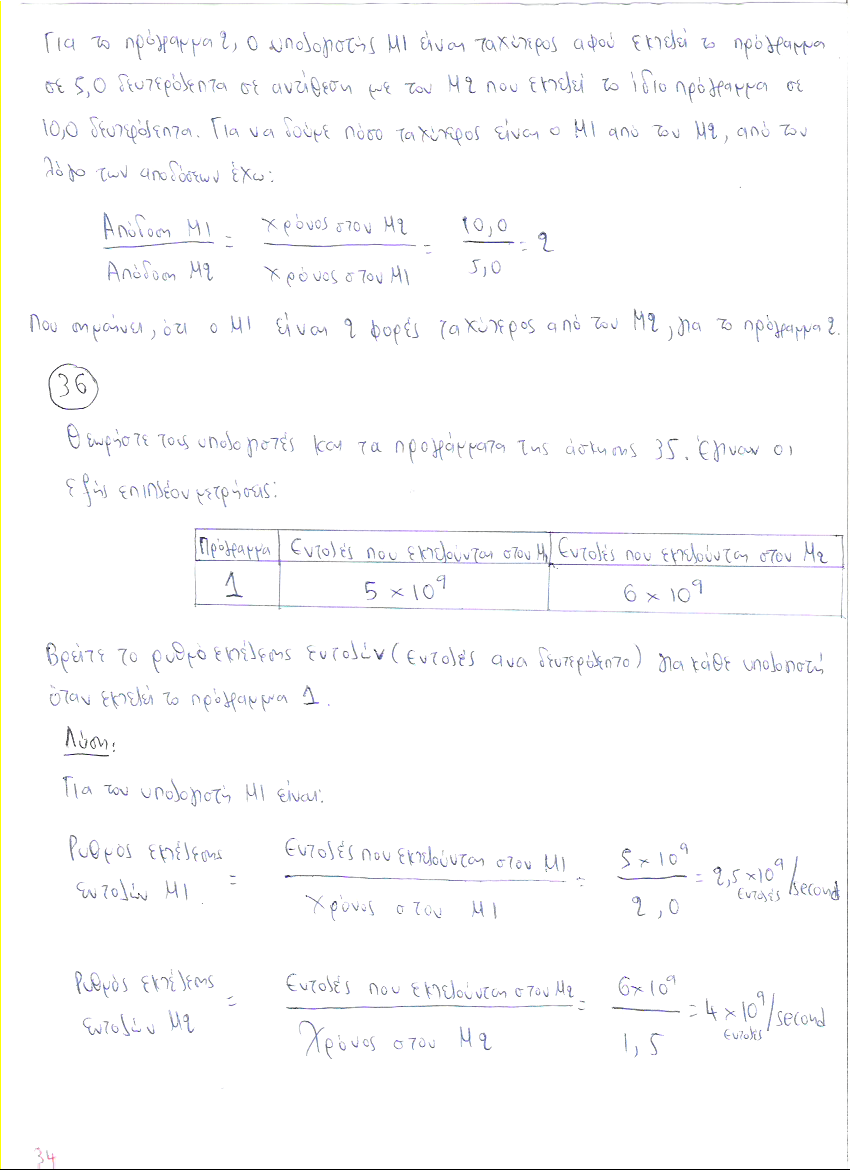 Για το πρόγραμμα 2, ο υπολογιστής M1 είναι ταχύτερος αφού εκτελεί το πρόγραμμα
σε 5,0 δευτερόλεπτα σε αντίθεση με τον M2 που εκτελεί το ίδιο πρόγραμμα σε
10,0 δευτερόλεπτα. Για να δούμε πόσο ταχύτερος είναι ο M1 από τον M2, από τον
λόγο των αποδόσεων έχω:
Απόδοση M1 / Απόδοση M2 = Χρόνος στον M2 / Χρόνος στον M1 = 10,0 / 5,0 = 2
Που σημαίνει, ότι ο M1 είναι 2 φορές ταχύτερος από τον M2, για το πρόγραμμα 2.
36
Θεωρήστε τους υπολογιστές και τα προγράμματα της άσκησης 35. Έγιναν οι
εξής επιπλέον μετρήσεις:
Πρόγραμμα Εντολές που εκτελούνται στον M1 Εντολές που εκτελούνται στον M2
1 5 × 10⁹ 6 × 10⁹
Βρείτε το ρυθμό εκτέλεσης εντολών (εντολές ανα δευτερόλεπτο) για κάθε υπολογιστή
όταν εκτελεί το πρόγραμμα 1.
Λύση:
Για τον υπολογιστή M1 είναι:
Ρυθμός εκτέλεσης εντολών M1 = Εντολές που εκτελούνται στον M1 / Χρόνος στον M1 = 5 × 10⁹ / 2,0 = 2,5 × 10⁹ εντολές/second
Ρυθμός εκτέλεσης εντολών M2 = Εντολές που εκτελούνται στον M2 / Χρόνος στον M2 = 6 × 10⁹ / 1,5 = 4 × 10⁹ εντολές/second
34